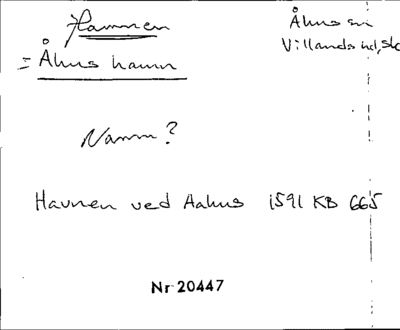 Hamnen
= Åhus hamn
Åhus sn
Villands hd, Sk
Namn?
Havnen ved Aahus 1591 KB 665
Nr 20447